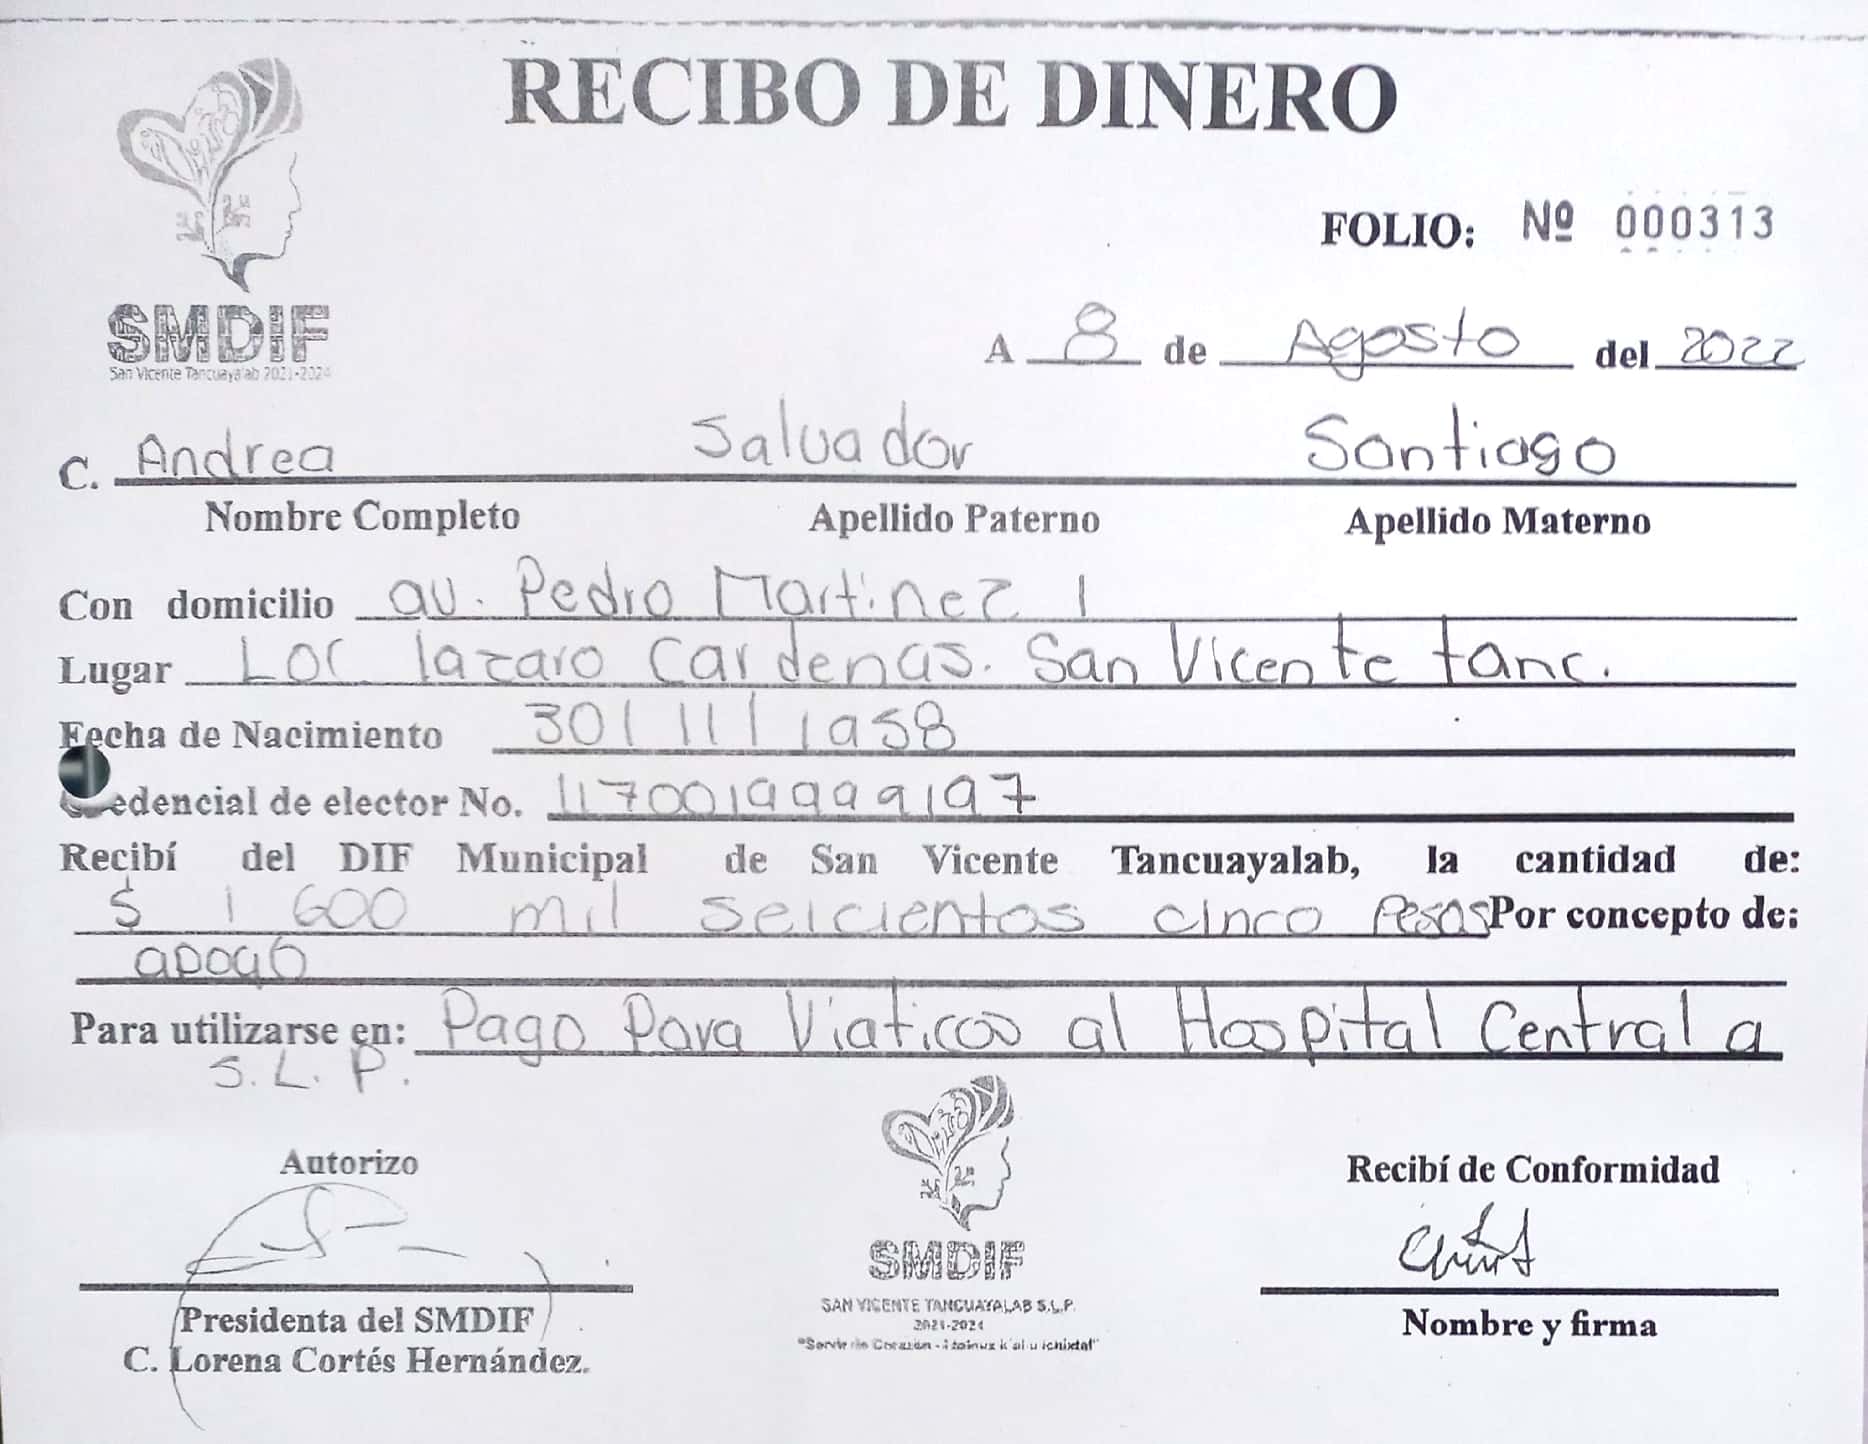 RECIBO DE DINERO
FOLIO: Nº 000313
SMDIF
San Vicente Tancuayalab 2021-2024
A 8 de Agosto del 2022
C. Andrea Salvador Santiago
Nombre Completo Apellido Paterno Apellido Materno
Con domicilio av. Pedro Martinez 1
Lugar Loc lazaro Cardenas. San Vicente tanc.
Fecha de Nacimiento 30/11/1958
edencial de elector No. 1170019999197
Recibí del DIF Municipal de San Vicente Tancuayalab, la cantidad de:
$ 1600 mil seicientos cinco Pesos Por concepto de:
apoyo
Para utilizarse en: Pago Para Viaticos al Hospital Central a
S.L.P.
Autorizo
Recibí de Conformidad
SMDIF
SAN VICENTE TANCUAYALAB S.L.P.
2021-2024
"Servir de Corazón -
Presidenta del SMDIF
C. Lorena Cortés Hernández.
Nombre y firma